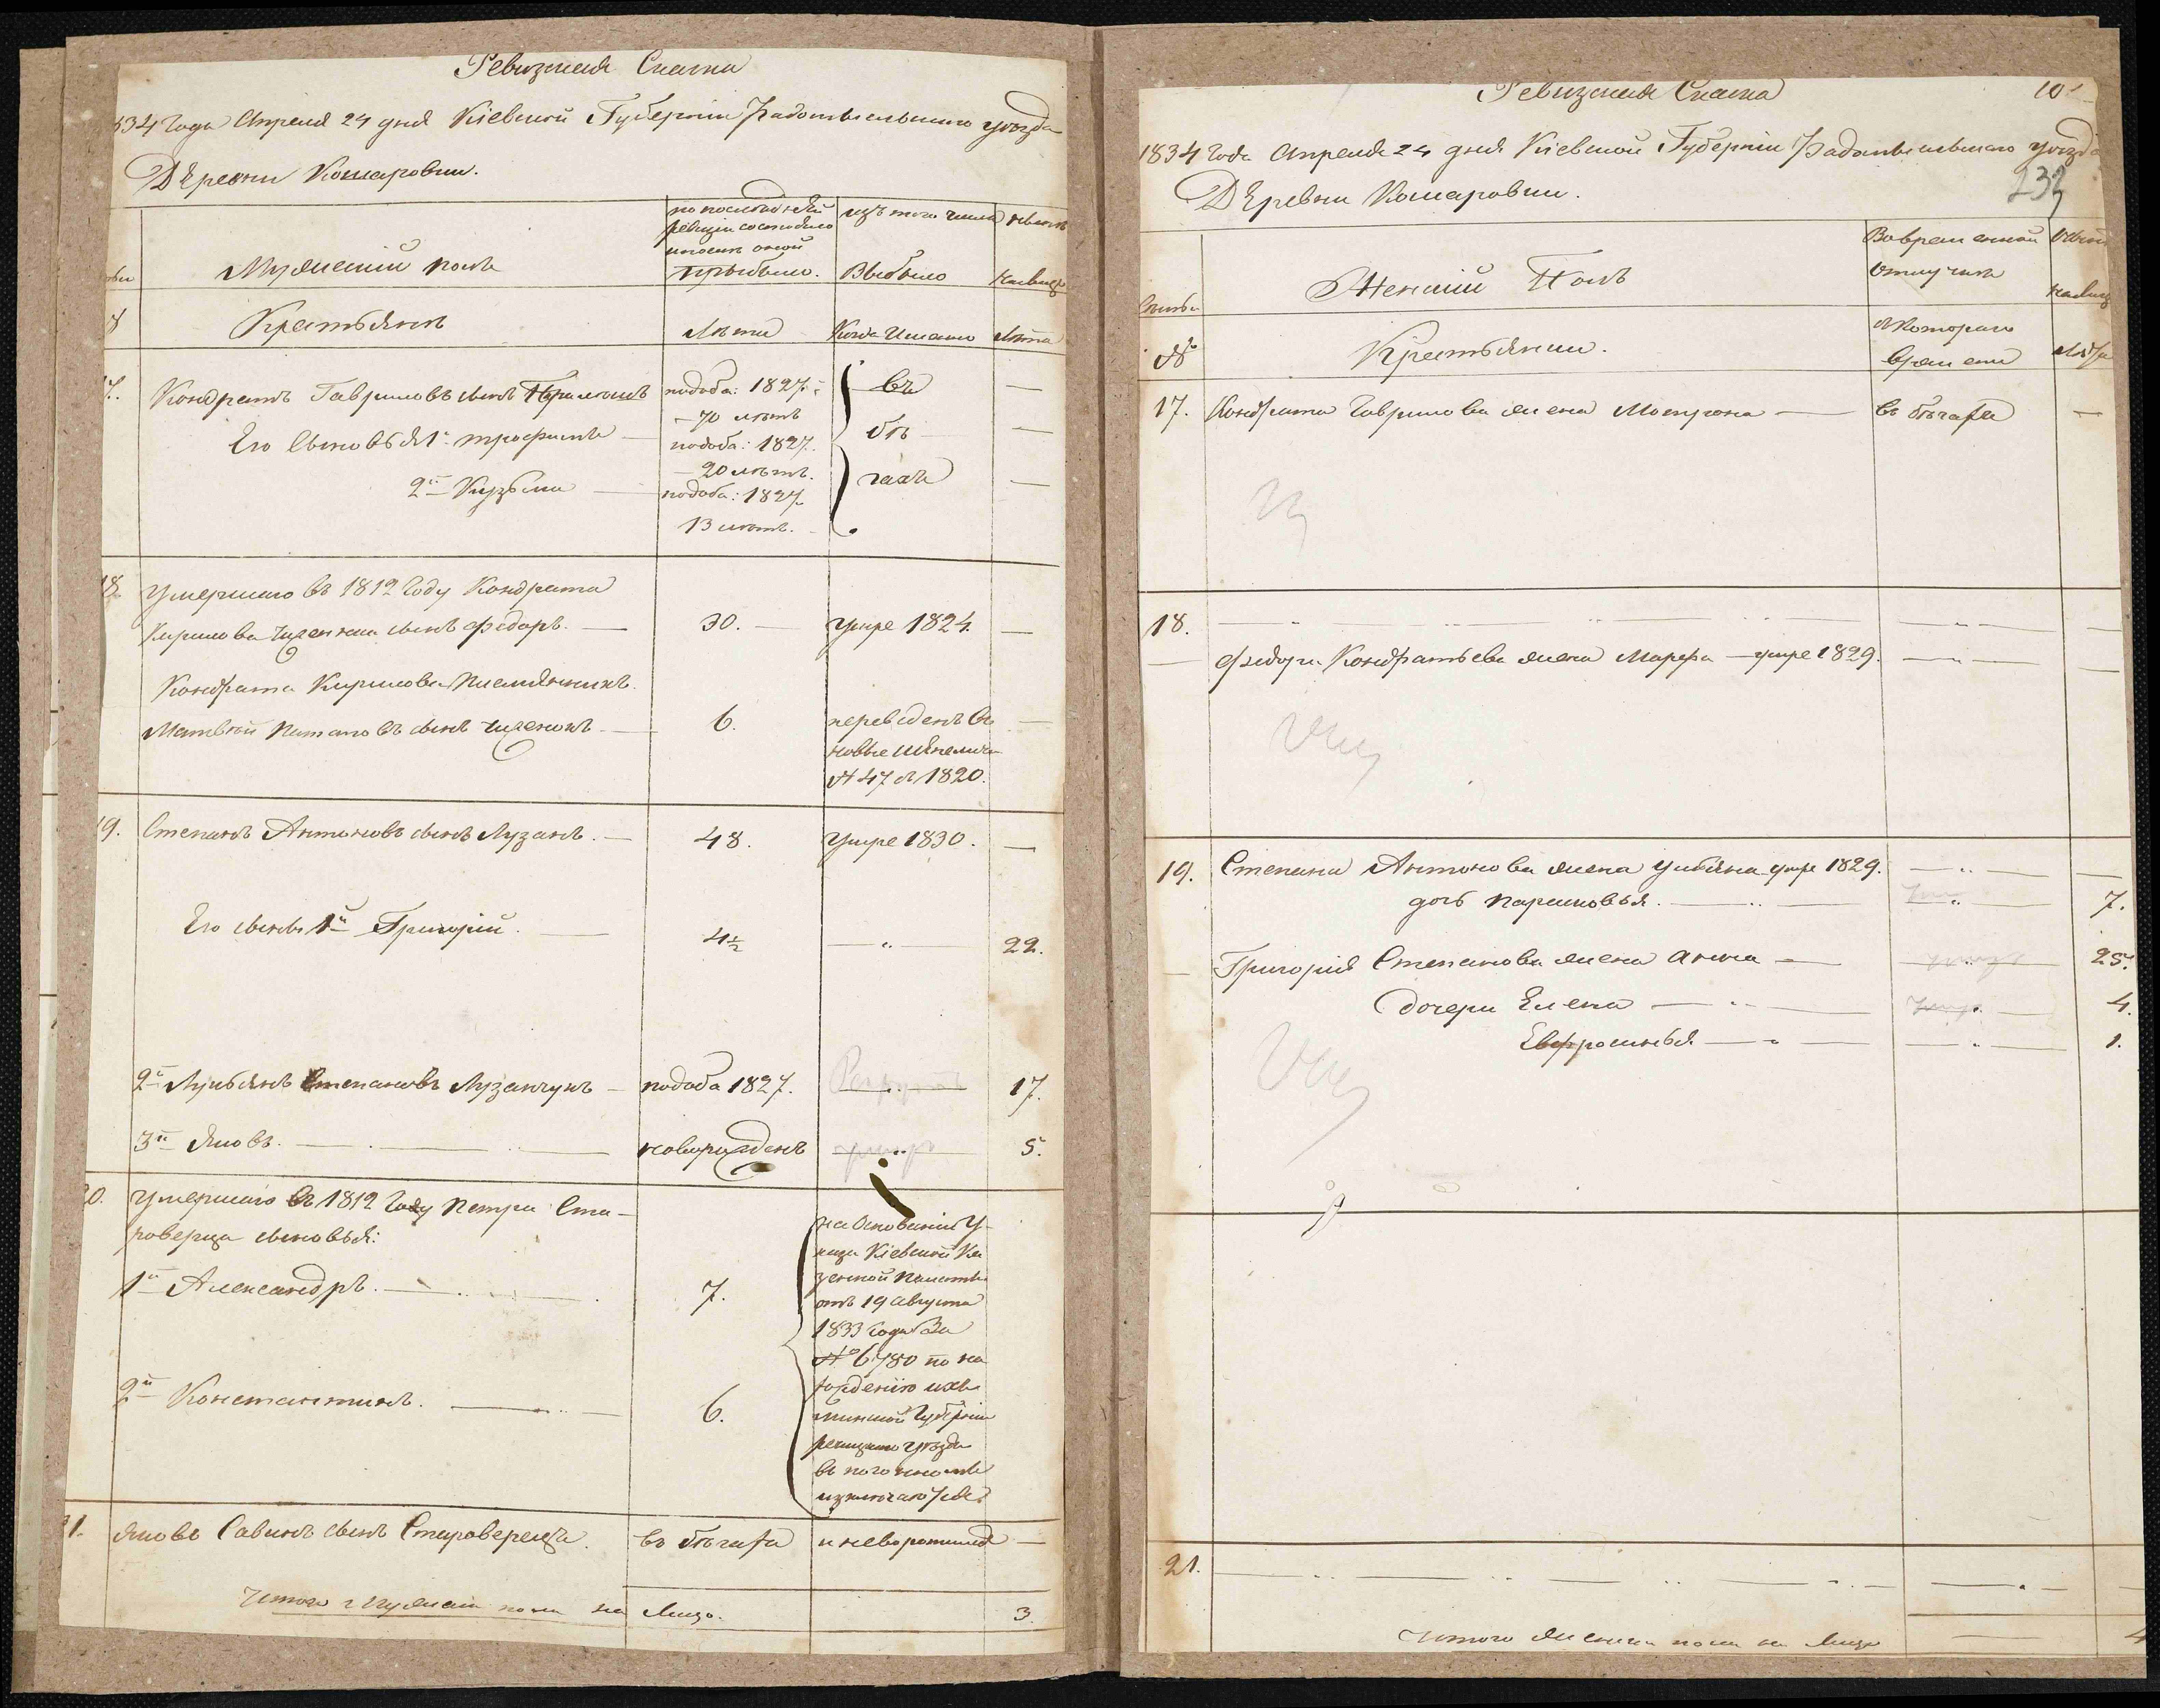 Ревизская Сказка
834 года Апреля 24 дня Кіевской Губерніи Радомысльскаго уѣзда
Деревни Комаровки.
по последней ревизіи состояло и после оной прибыло.
изъ того числа Выбыло
Мужеский полъ
Крестьянъ
Лѣта
Когда Именно
Лѣта
17. Кондратъ Гавриловъ сынъ
подоба: 1827.
70 лѣтъ
въ
—
Его Сыновья 1й трофимъ —
подоба: 1827.
20 лѣтъ.
бѣ
—
2й Кузьма —
подоба: 1827
13 лѣтъ.
гахъ
—
18. умершаго въ 1812 году Кондрата
Кирилова сынъ Федоръ. —
30. —
умре 1824.
—
Кондрата Кирилова Племянникъ
Матвѣй сынъ —
6.
переведенъ въ
новые
№ 47 в 1820.
—
19. Степанъ Антоновъ сынъ Лузанъ. —
48.
умре 1830.
—
Его сыновья 1й Григорій. —
4½
— „ —
22.
2й Лукьянъ Степановъ Лузанчукъ —
подоба 1827.
17.
3й Яковъ. —
новорожденъ
5.
20. умершаго въ 1812 году Петра Ста-
роверца сыновья:
1й Александръ. —
7.
2й Константинъ. —
6.
на основаніи У-
каза Кіевской Ка
зенной палаты
отъ 19 августа
1833 года За
№ 6780 по на
хожденію ихъ
минской Губерніи
речицкаго уѣзда
исключаются
21. Яковъ Савинъ сынъ Староверецъ.
въ бѣгахъ
и неворотился
—
Итого мужеска пола на Лицо.
3.
Ревизская Сказка
10
1834 года Апреля 24 дня Кіевской Губерніи Радомысльскаго уѣзда
232
Деревни Комаровки.
Женский Полъ
Во временной отлучкѣ
№
Крестьянки.
с Котораго времени
Лѣта
17. Кондрата Гаврилова жена Матрона —
въ бѣгахъ
—
18.
— Федора Кондратьева жена Марфа — умре 1829.
—
19. Степана Антонова жена Ульяна умре 1829.
—
дочь Парасковья. —
7.
— Григорія Степанова жена Анна —
25.
дочери Елена —
4.
Евфросинья —
1.
21.
Итого женска пола на Лицо
4